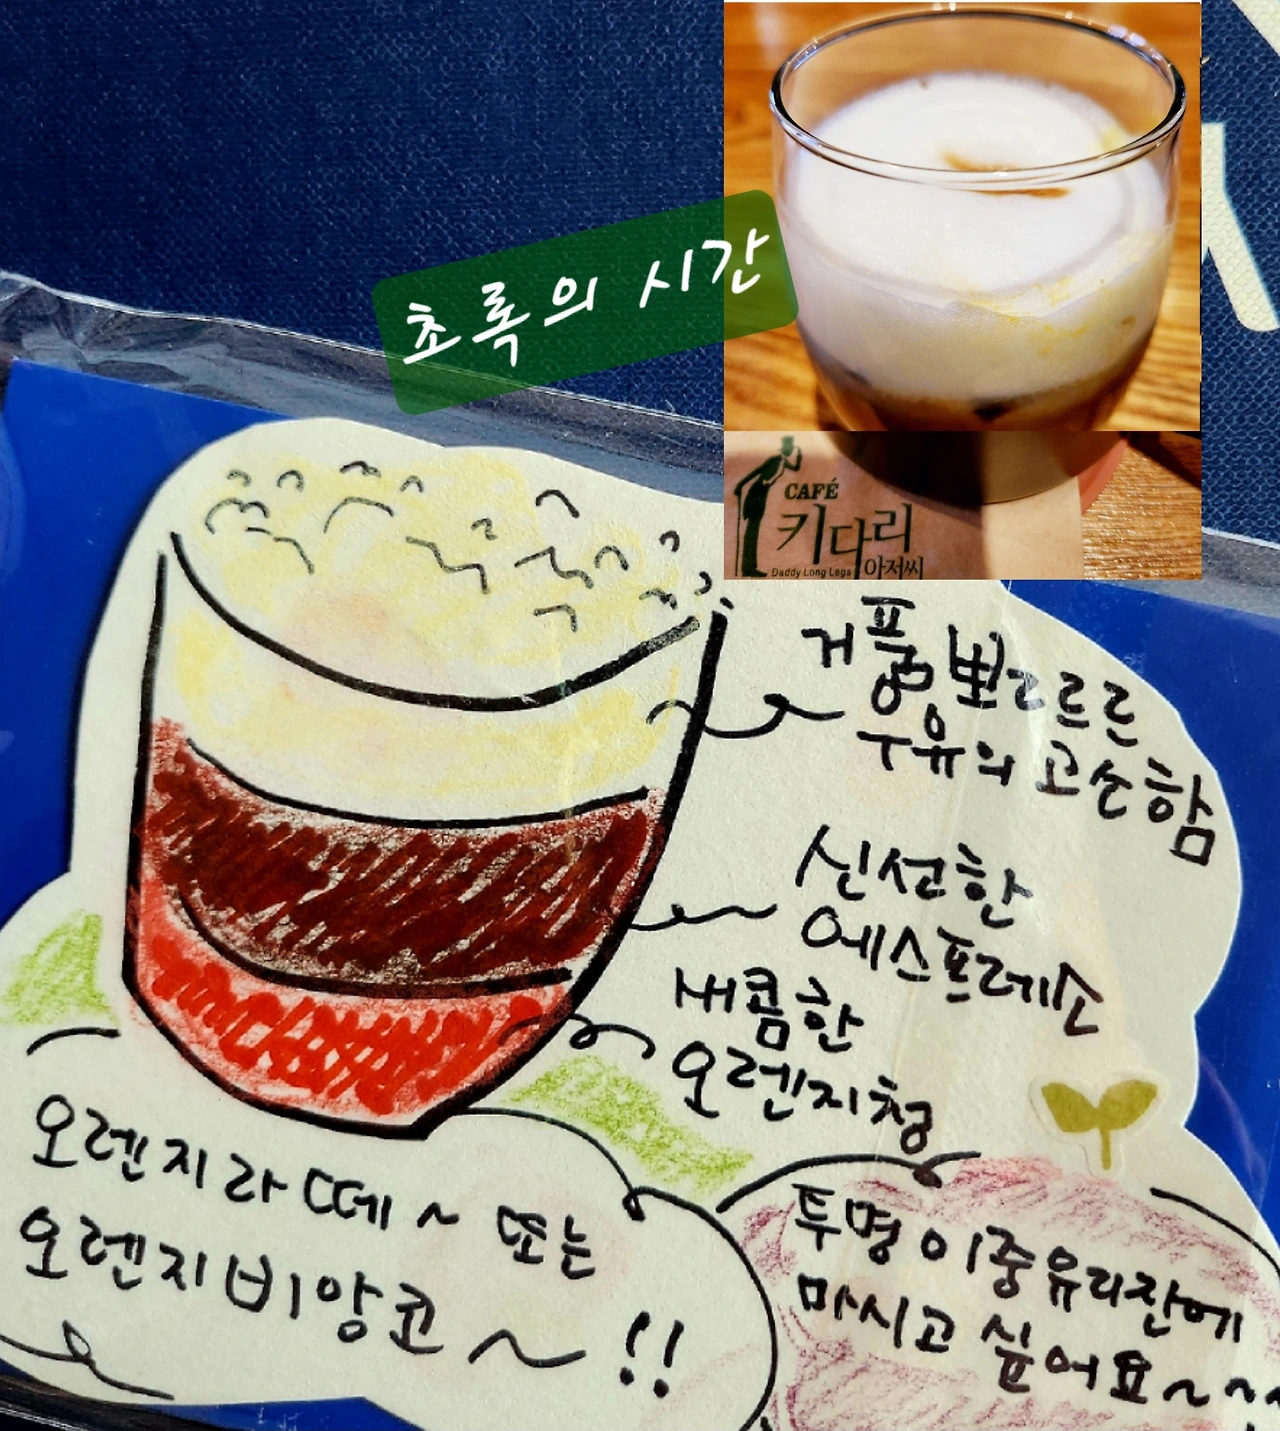 초록의 시간
CAFÉ
키다리
Daddy Long Legs 아저씨
거품 뽀르르
우유의 고소함
신선한
에스프레소
새콤한
오렌지청
오렌지라떼~ 또는
오렌지비앙코~!!
투명이중유리잔에
마시고 싶어요~~~